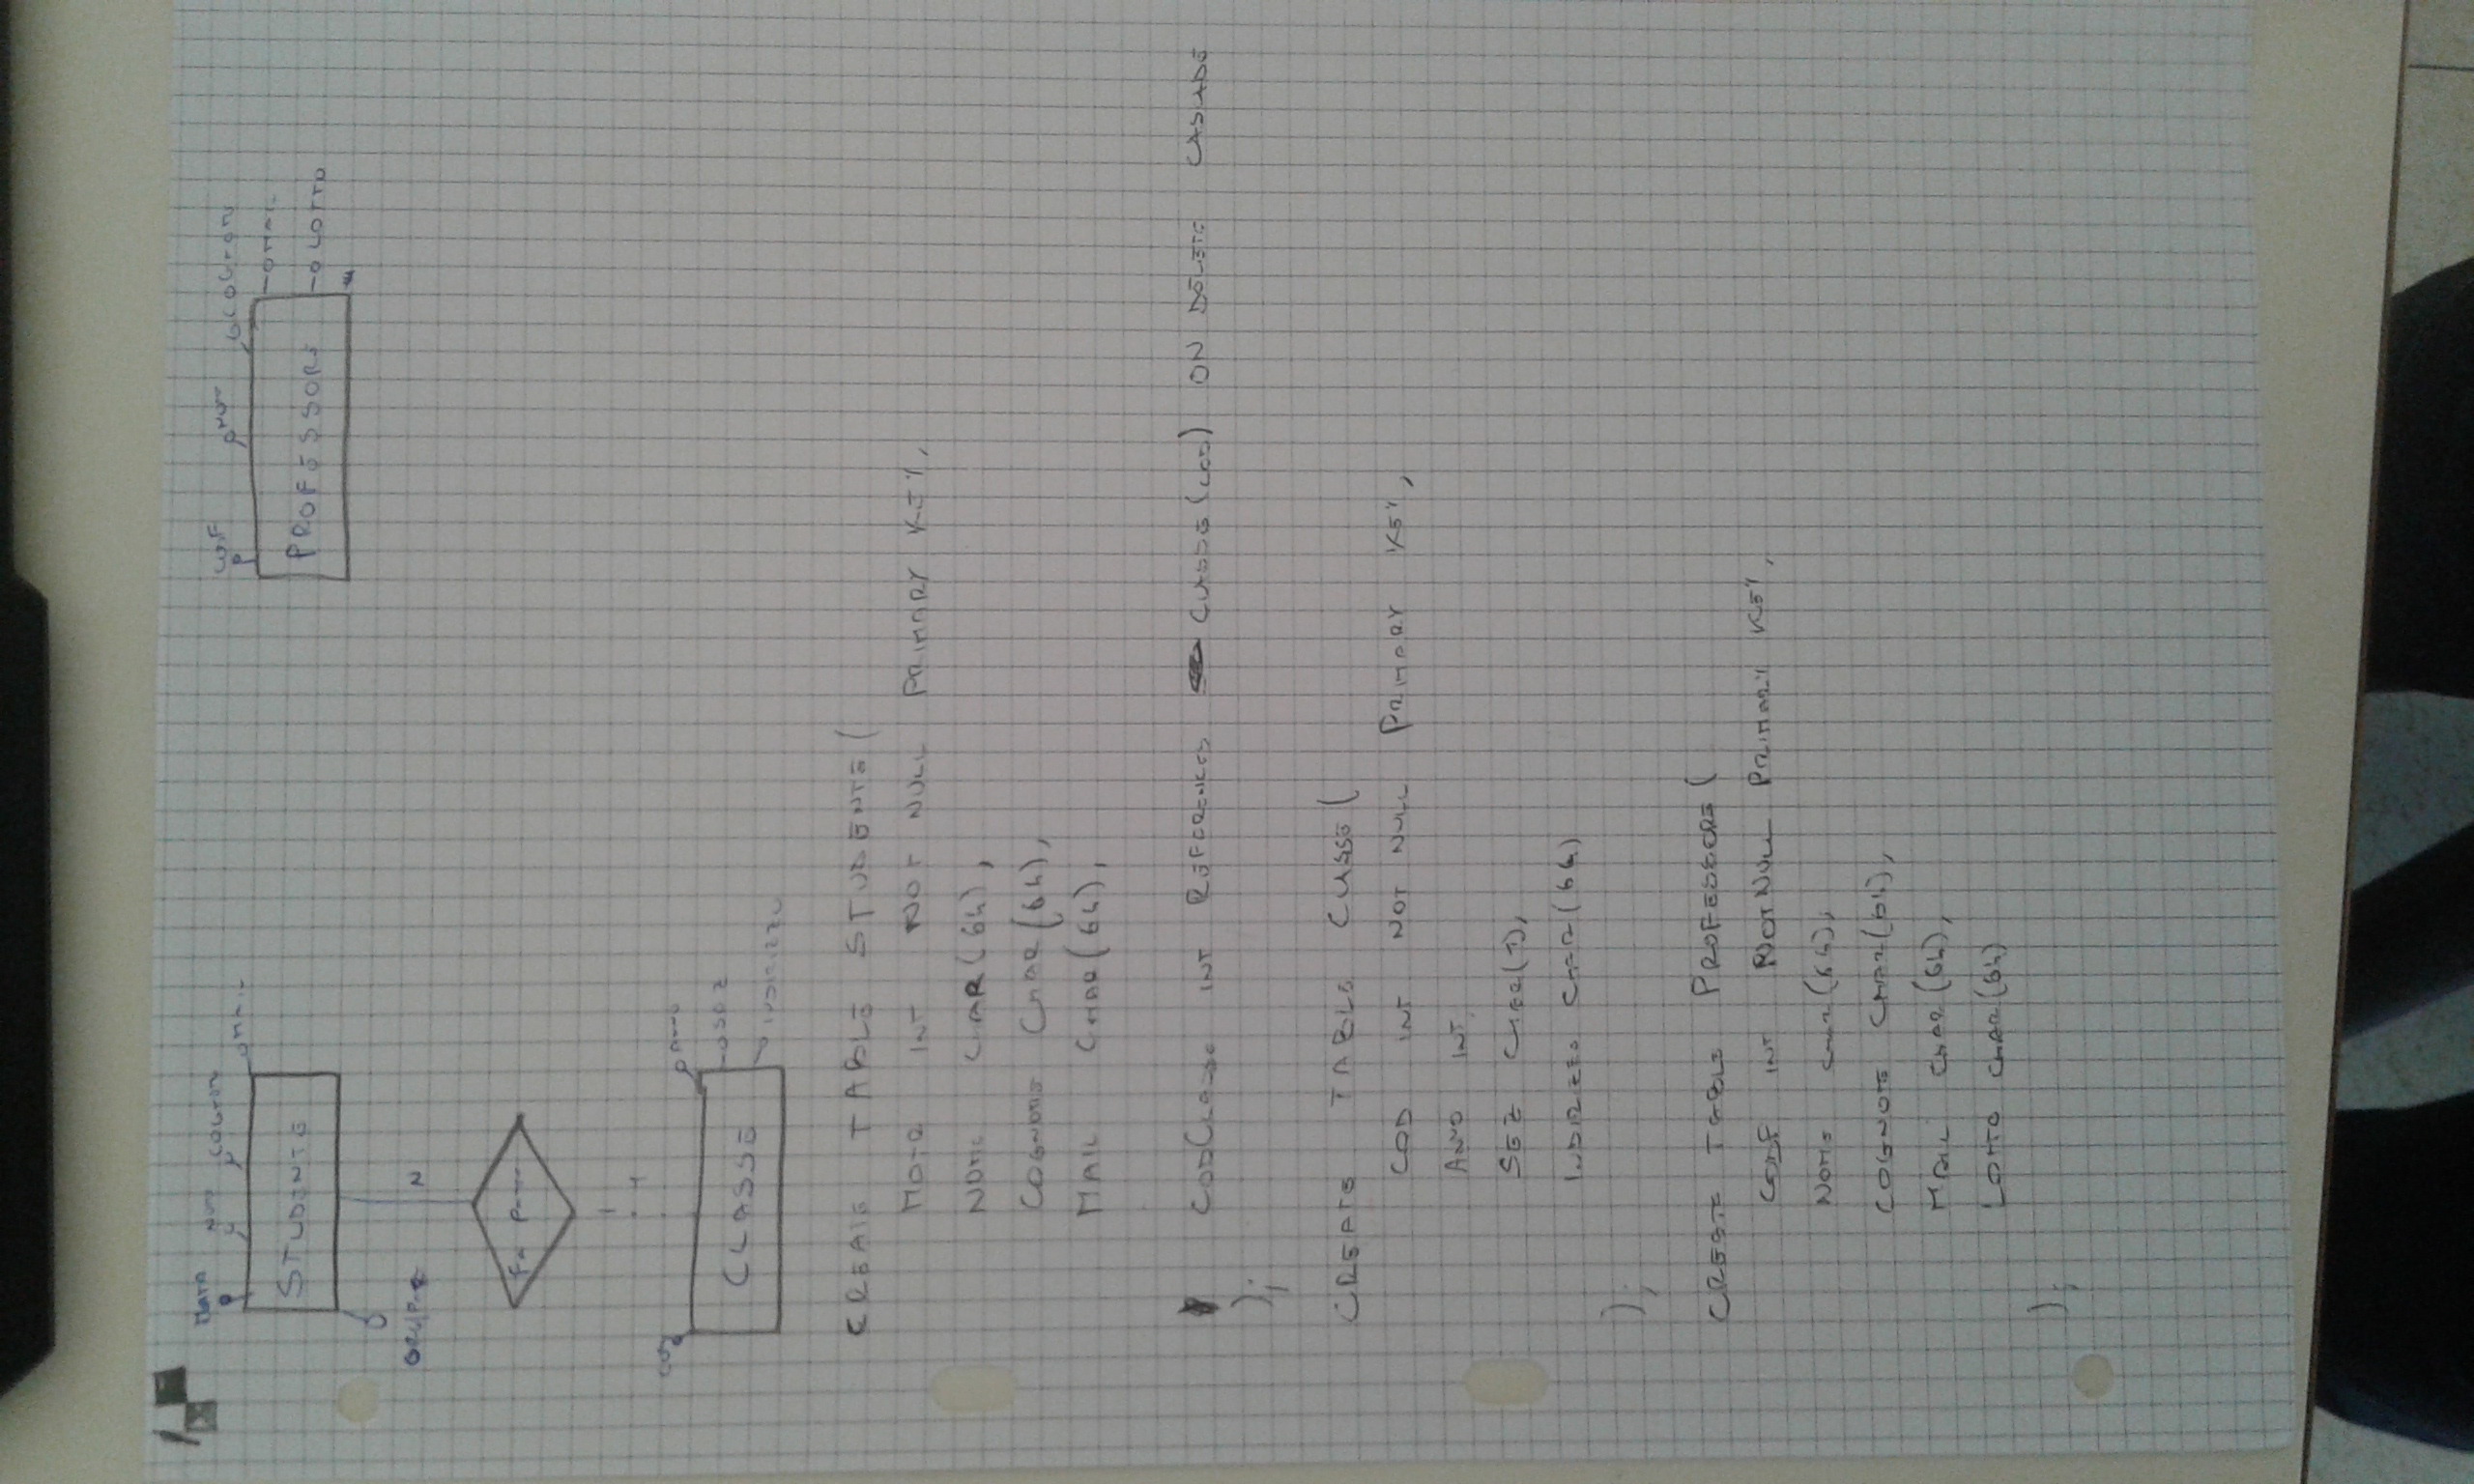 MATR NOME COGNOME MAIL
STUDENTE
N
Fa parte
1
COD ANNO
CLASSE
SEZ
INDIRIZZO
CODF NOME COGNOME
PROFESSORE
MAIL
LOTTO
CREATE TABLE STUDENTE(
MATR INT NOT NULL PRIMARY KEY,
NOME CHAR(64),
COGNOME CHAR(64),
MAIL CHAR(64),
CODCLASSE INT REFERENCES CLASSE(COD) ON DELETE CASCADE
);
CREATE TABLE CLASSE(
COD INT NOT NULL PRIMARY KEY,
ANNO INT,
SEZ CHAR(1),
INDIRIZZO CHAR(64)
);
CREATE TABLE PROFESSORE(
CODF INT NOT NULL PRIMARY KEY,
NOME CHAR(64),
COGNOME CHAR(64),
MAIL CHAR(64),
LOTTO CHAR(64)
);